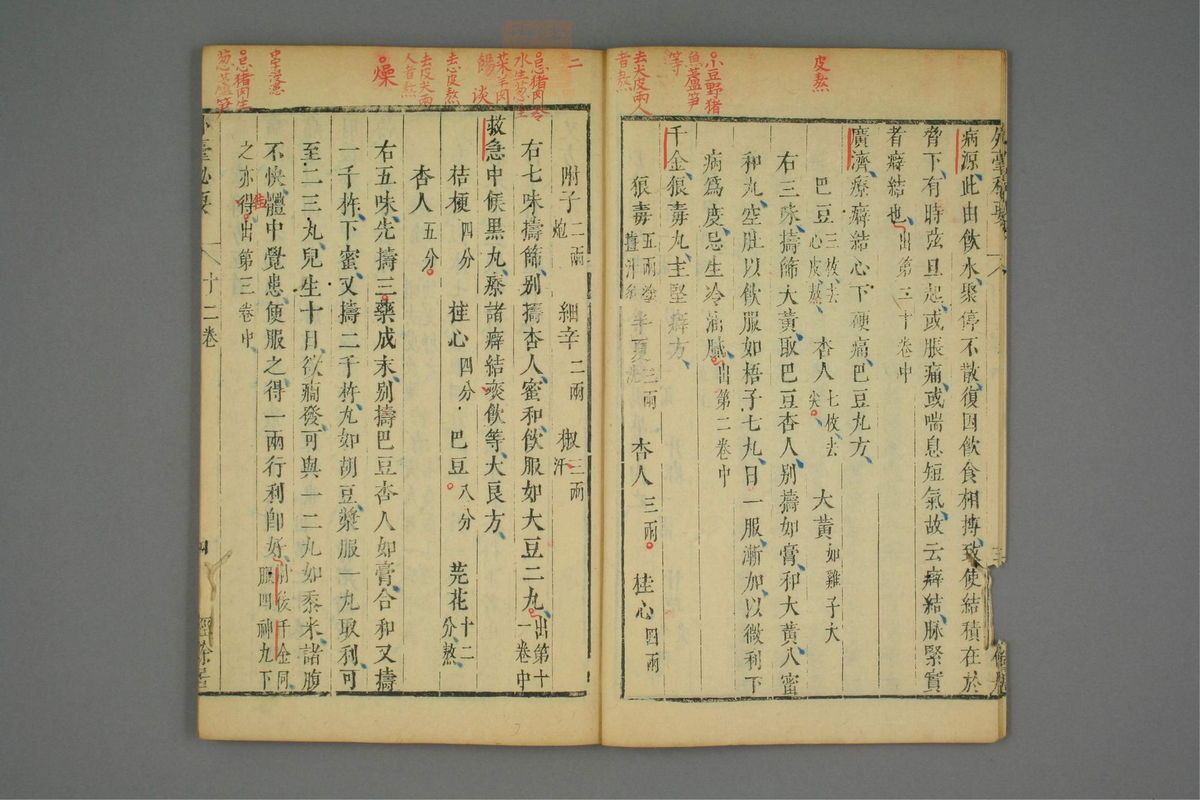 病源此由飲水聚停不散復因飲食相搏致使結積在於
脅下有時弦亘起或脹痛或喘息短氣故云癖結脉緊實
者癖結也出第二十卷中
廣濟療癖結心下硬痛巴豆丸方
巴豆三枚去心皮熬 杏人七枚去尖 大黃如雞子大
右三味擣篩大黃取巴豆杏人別擣如膏和大黃入蜜
和丸空肚以飲服如梧子七丸日一服漸加以微利下
病爲度忌生冷油膩出第二卷中
千金狼毒丸主堅癖方
狼毒五兩 半夏三兩 杏人三兩 桂心四兩
皮熬
小豆野猪
魚蘆笋
等
去尖皮兩人
者熬
附子二兩炮 細辛二兩 椒三兩汗
右七味擣篩別擣杏人蜜和飲服如大豆二丸出第十一卷中
救急中候黒丸療諸癖結痰飲等大良方
桔梗四分 桂心四分 巴豆八分 芫花十二分熬
杏人五分
右五味先擣三藥成末別擣巴豆杏人如膏合和又擣
一千杵下蜜又擣二千杵丸如胡豆漿服一丸取利可
至二三丸兒生十日欲癎發可與一二丸如黍米諸腹
不快體中覺患便服之得一兩行利卽好肘後千金同服四神丸下
之亦得出第三卷中
十二卷
四
經餘居
二
忌猪肉冷
水生葱生
菜羊肉
餳
去心皮熬
去皮尖兩
人者熬
燥
忌猪肉生
葱蘆笋